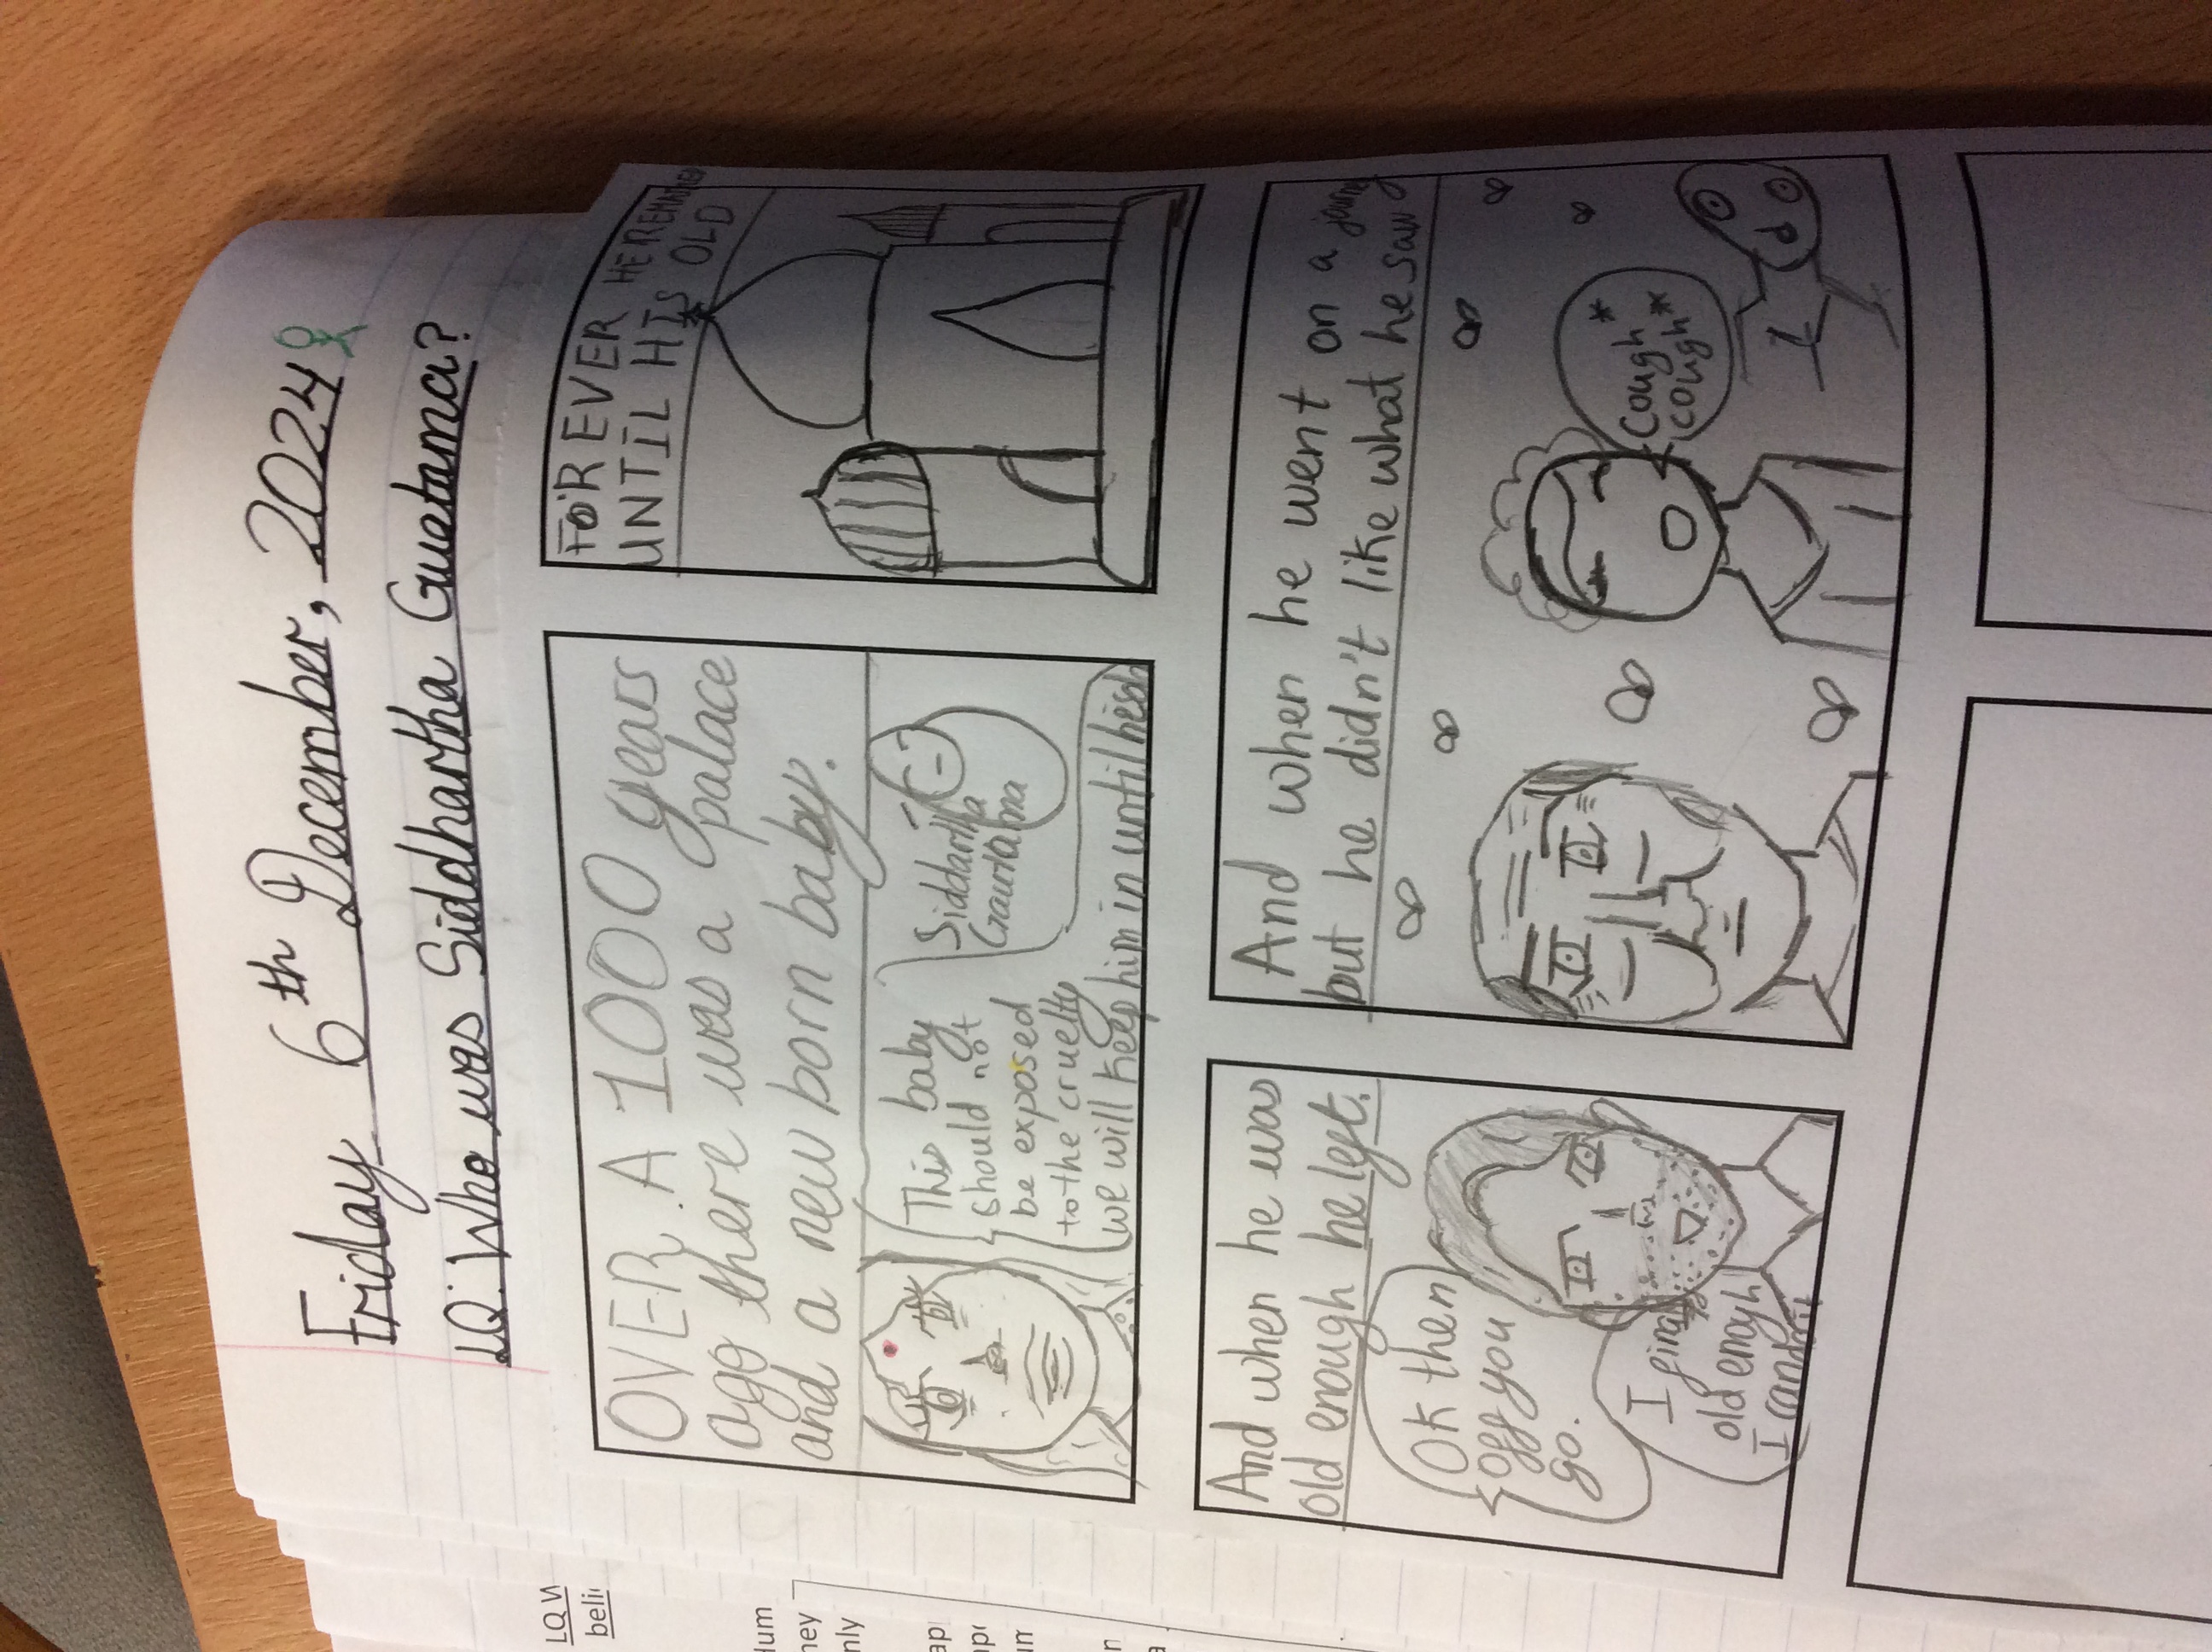 Friday 6th December, 2024
LQ: Who was Siddhartha Guetama?
OVER A 1000 years
ago there was a palace
and a new born baby.
This baby
should not
be exposed
to the cruelty
we will keep him in until hes
Siddartha
Gauta
FOREVER HE REMAINED
UNTIL HIS OLD
And when he was
old enough he left.
OK then
off you
go.
I
finaly
old enogh
I can
And when he went on a
but he didn't like what he saw
*cough*
cough*
LQ W
beli
lum
ney
nly
ap